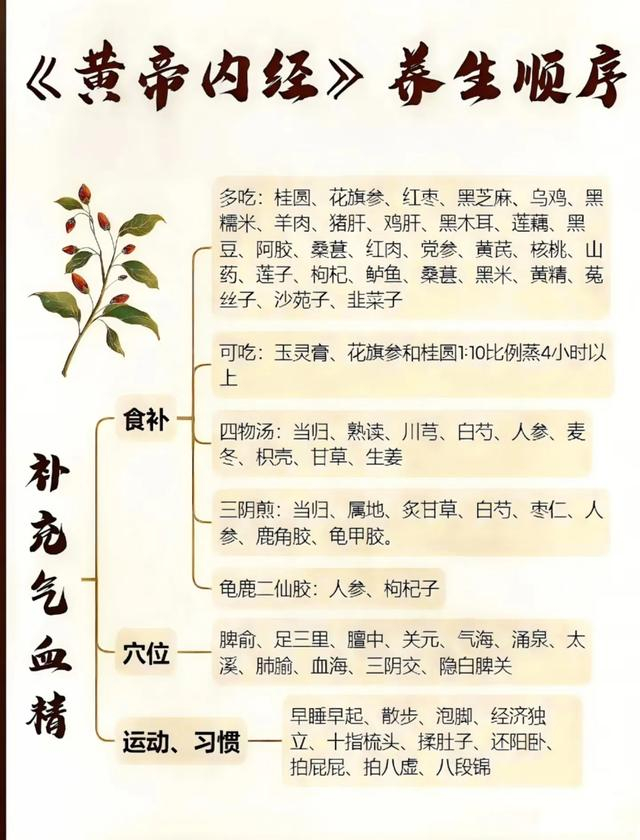 《黄帝内经》养生顺序
多吃：桂圆、花旗参、红枣、黑芝麻、乌鸡、黑
糯米、羊肉、猪肝、鸡肝、黑木耳、莲藕、黑
豆、阿胶、桑葚、红肉、党参、黄芪、核桃、山
药、莲子、枸杞、鲈鱼、桑葚、黑米、黄精、菟
丝子、沙苑子、韭菜子
可吃：玉灵膏、花旗参和桂圆1:10比例蒸4小时以
上
食补
四物汤：当归、熟读、川芎、白芍、人参、麦
冬、枳壳、甘草、生姜
三阴煎：当归、属地、炙甘草、白芍、枣仁、人
参、鹿角胶、龟甲胶。
龟鹿二仙胶：人参、枸杞子
补充气血精
穴位
脾俞、足三里、膻中、关元、气海、涌泉、太
溪、肺腧、血海、三阴交、隐白脾关
运动、习惯
早睡早起、散步、泡脚、经济独
立、十指梳头、揉肚子、还阳卧、
拍屁屁、拍八虚、八段锦